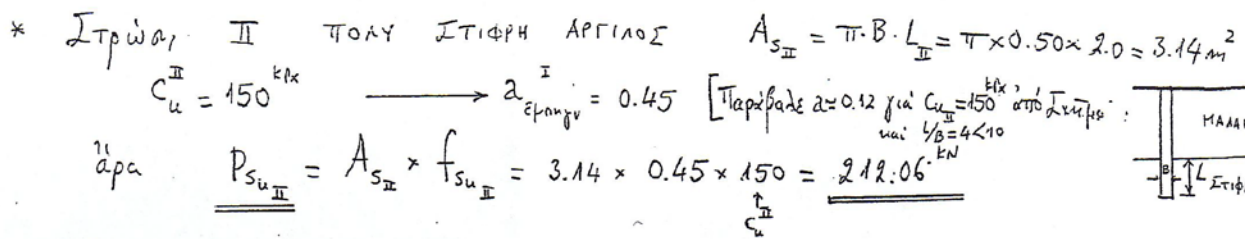 * Στρώσις II ΠΟΛΥ ΣΤΙΦΡΗ ΑΡΓΙΛΟΣ A_{S_{II}} = π.B.L_{II} = π×0.50×2.0 = 3.14 m²
C_u^{II} = 150^{kPa} → a^{I}_{έμπηγν} = 0.45 [Παράβαλε a=0.12 γιά C_{u_{II}}=150^{kPa} από Σχήμα:
και L/B=4<10
άρα P_{su_{II}} = A_{s_{II}} × f_{su_{II}} = 3.14 × 0.45 × 150 = 212.06^{kN}
↑
C_u^{II}
ΜΑΛΑΚ
B L ΣΤΙΦΡ